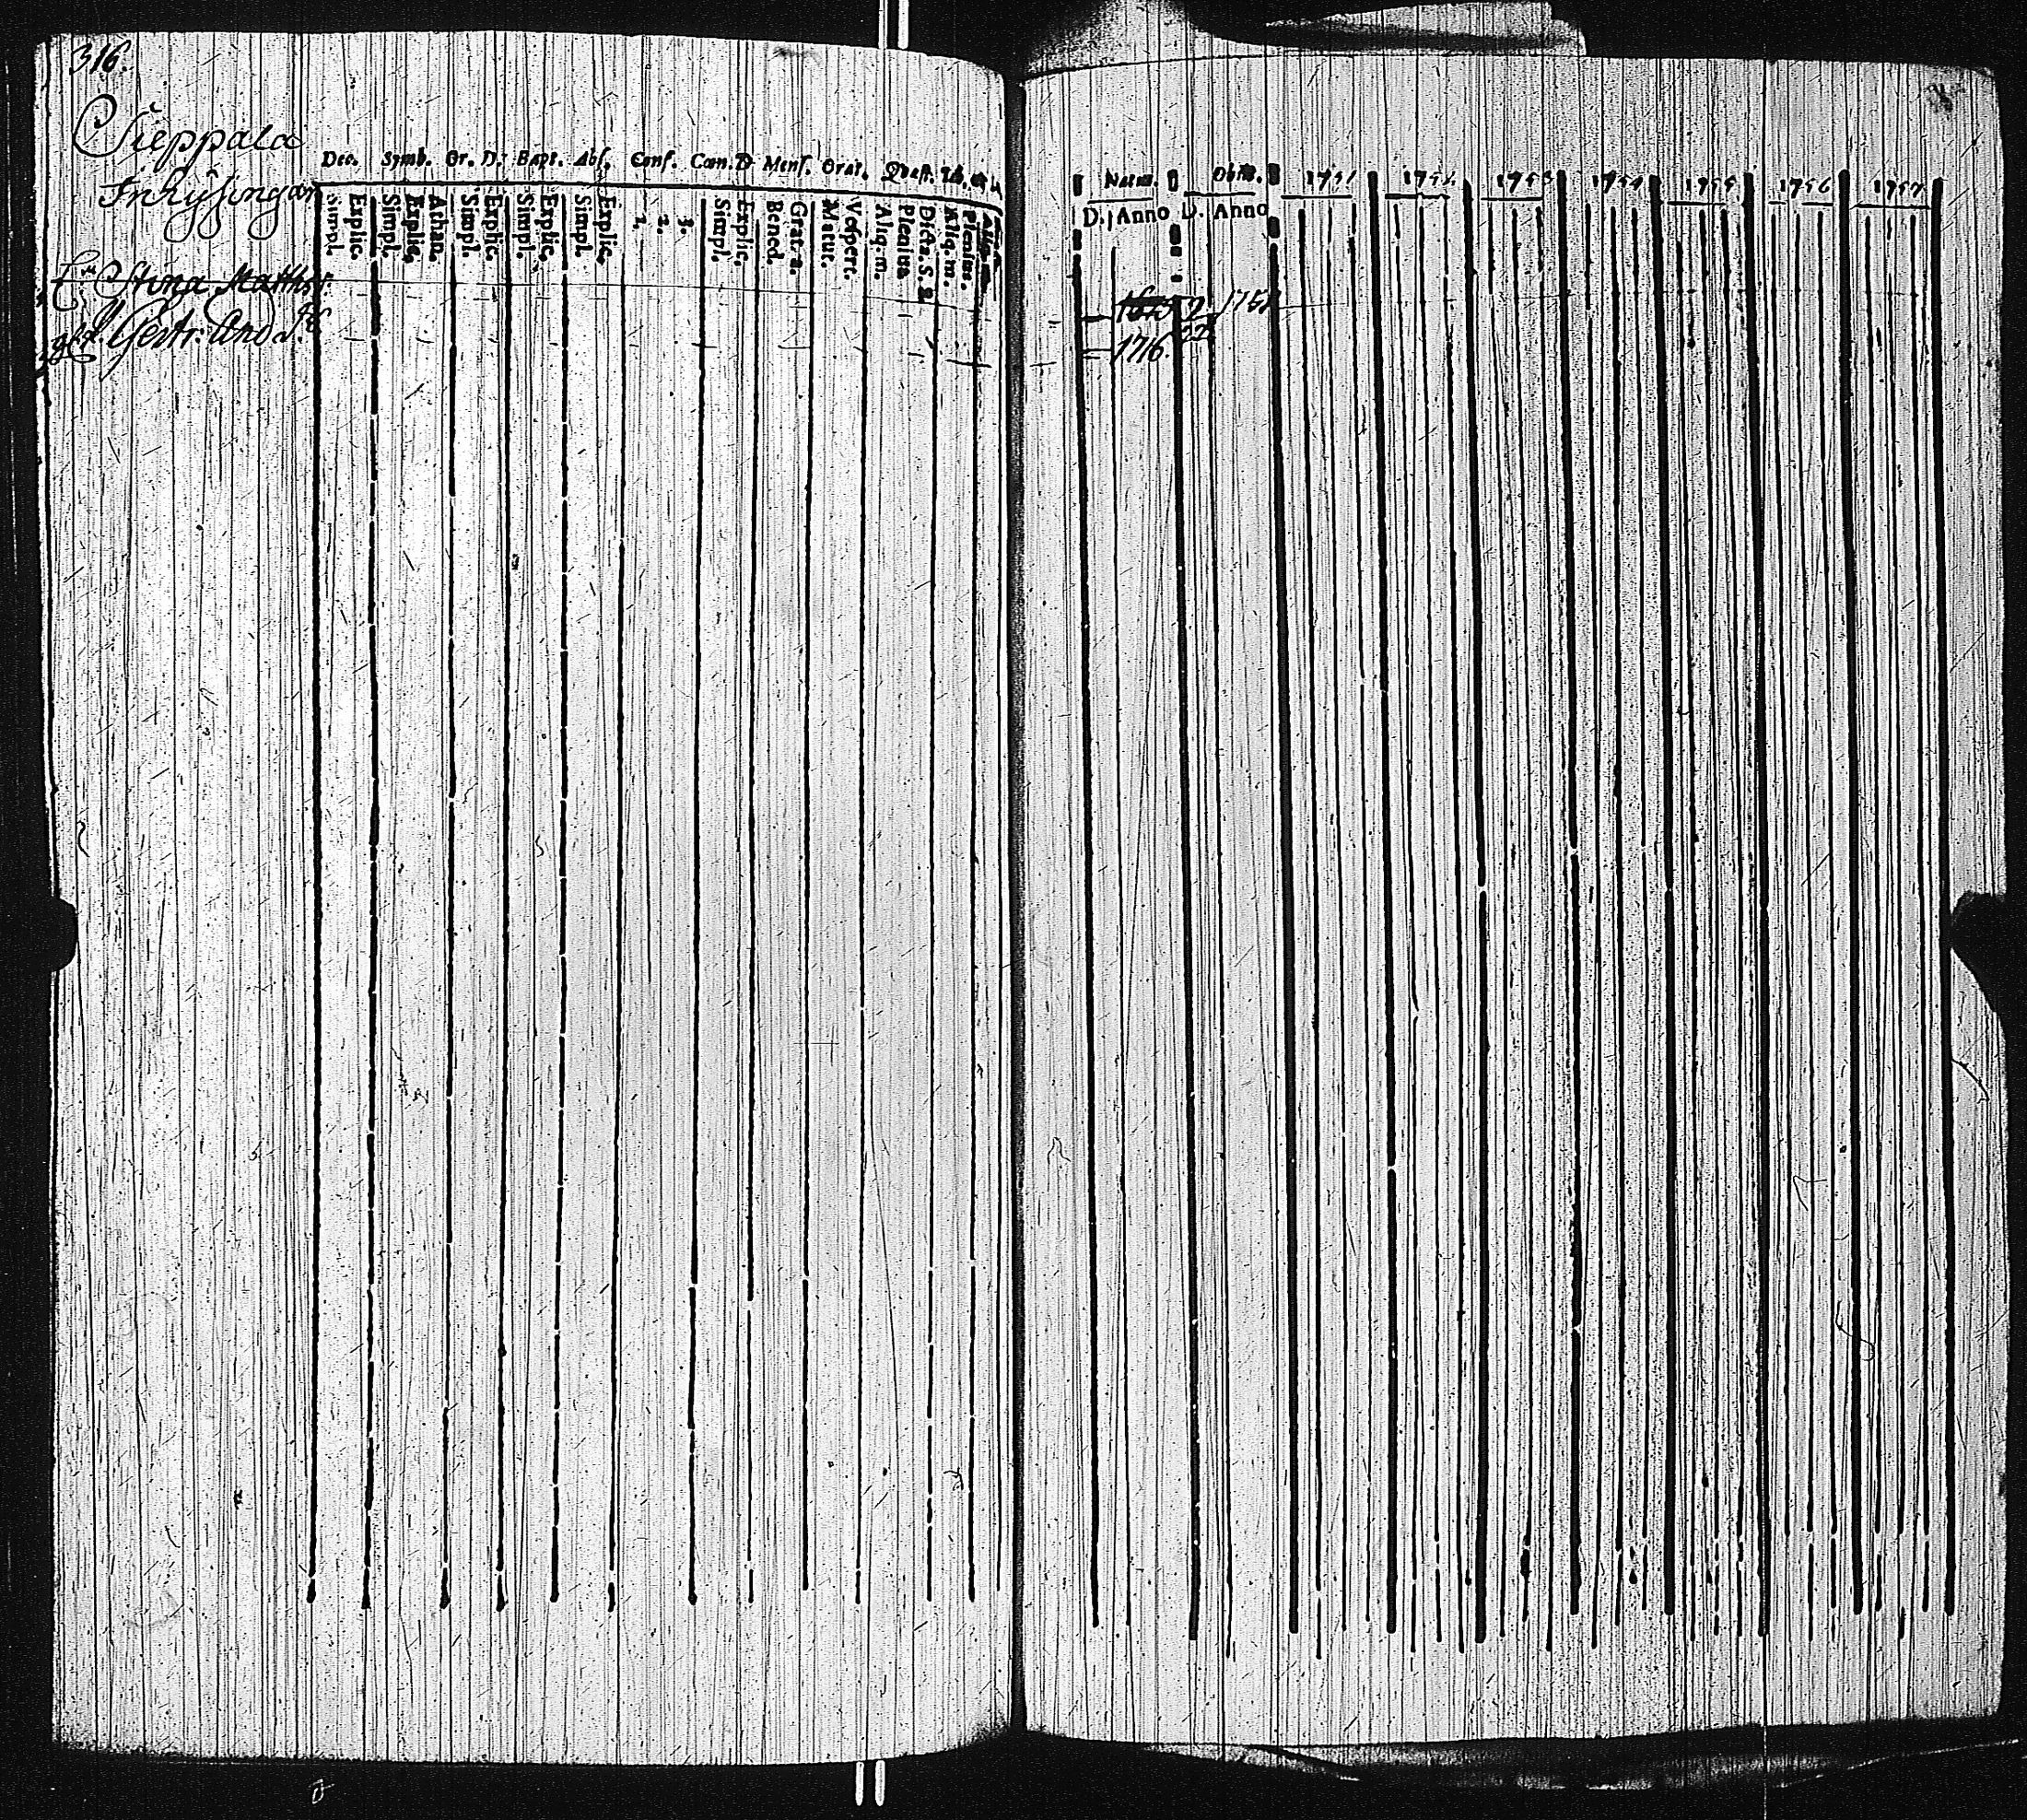 316.
Sieppala
Inhysingar
Dec. Symb. Or. D. Bapt. Abs. Conf. Cœn. D Mens. Orat. Quæst.
Simpl. Explic. Simpl. Explic. Athan. Simpl. Explic. Simpl. Explic. Simpl. Explic. 1. 2. 3. Simpl. Explic. Bened. Grat. a. Matut. Vespert. Aliq. m. Plenius Dicta. S. S. Aliq. m. Plenius.
Stina Matths
Gertr. And
Natus. Obiit. 1751 1752 1753 1754 1755 1756 1757
D. Anno D. Anno
1716.